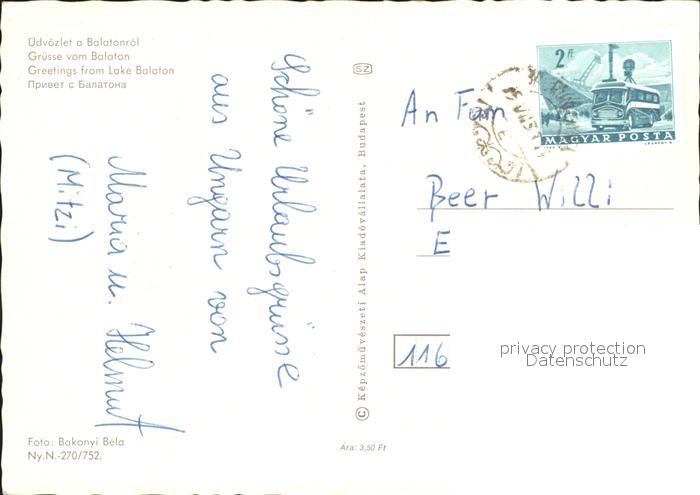 Üdvözlet a Balatonról
Grüsse vom Balaton
Greetings from Lake Balaton
Привет с Балатона
Schöne Urlaubsgrüsse
aus Ungarn von
Maria u. Helmut
(Mitzi)
Foto: Bakonyi Béla
Ny.N.-270/752.
SZ
© Képzőművészeti Alap Kiadóvállalata, Budapest
Ára: 3,50 Ft
2 Ft
MAGYAR POSTA
An Fam
Beer Willi
E
116
privacy protection
Datenschutz